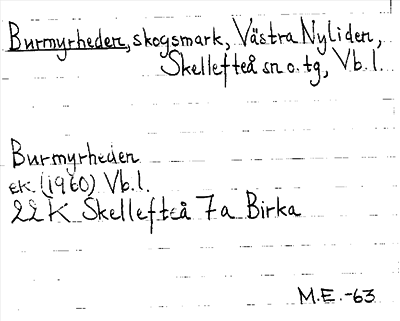 Burmyrheden, skogsmark, Västra Nyliden,
Skellefteå sn o. tg, Vb. l.
Burmyrheden
ek. (1960) Vb. l.
22 K Skellefteå 7a Birka
M.E. -63